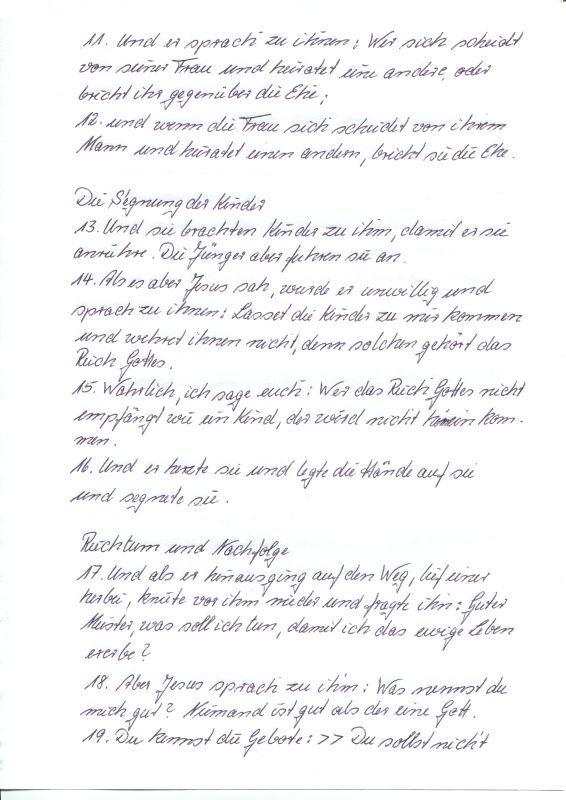 11. Und er sprach zu ihnen: Wer sich scheidet
von seiner Frau und heiratet eine andere, oder
bricht ihr gegenüber die Ehe;
12. und wenn die Frau sich scheidet von ihrem
Mann und heiratet einen andern, bricht sie die Ehe.
Die Segnung der Kinder
13. Und sie brachten Kinder zu ihm, damit er sie
anrühre. Die Jünger aber fuhren sie an.
14. Als es aber Jesus sah, wurde er unwillig und
sprach zu ihnen: Lasset die Kinder zu mir kommen
und wehret ihnen nicht, denn solchen gehört das
Reich Gottes.
15. Wahrlich, ich sage euch: Wer das Reich Gottes nicht
empfängt wie ein Kind, der wird nicht hinein kom-
men.
16. Und er herzte sie und legte die Hände auf sie
und segnete sie.
Reichtum und Nachfolge
17. Und als er hinausging auf den Weg, lief einer
herbei, kniete vor ihm nieder und fragte ihn: Guter
Meister, was soll ich tun, damit ich das ewige Leben
ererbe?
18. Aber Jesus sprach zu ihm: Was nennst du
mich gut? Niemand ist gut als der eine Gott.
19. Du kennst die Gebote: >> Du sollst nicht